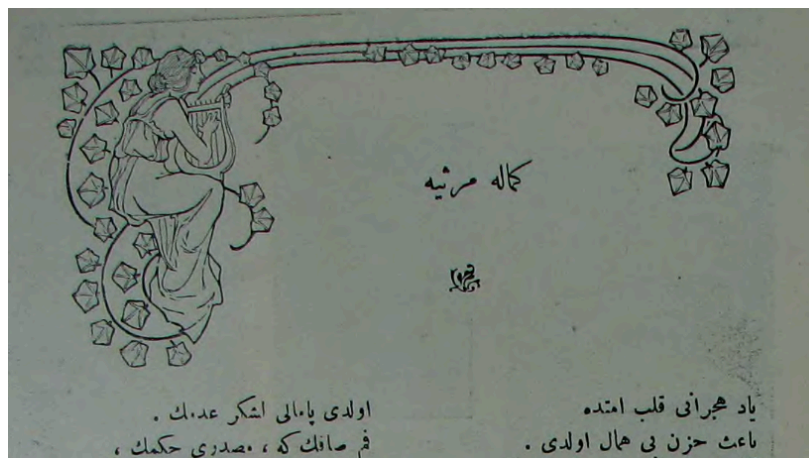 كماله مرثیه
یاد هجرانی قلب امتده
باعث حزن بی همال اولدی .
اولدی پامالی لشکر عدمك .
فم صافك كه ، مصدری حكمك ،